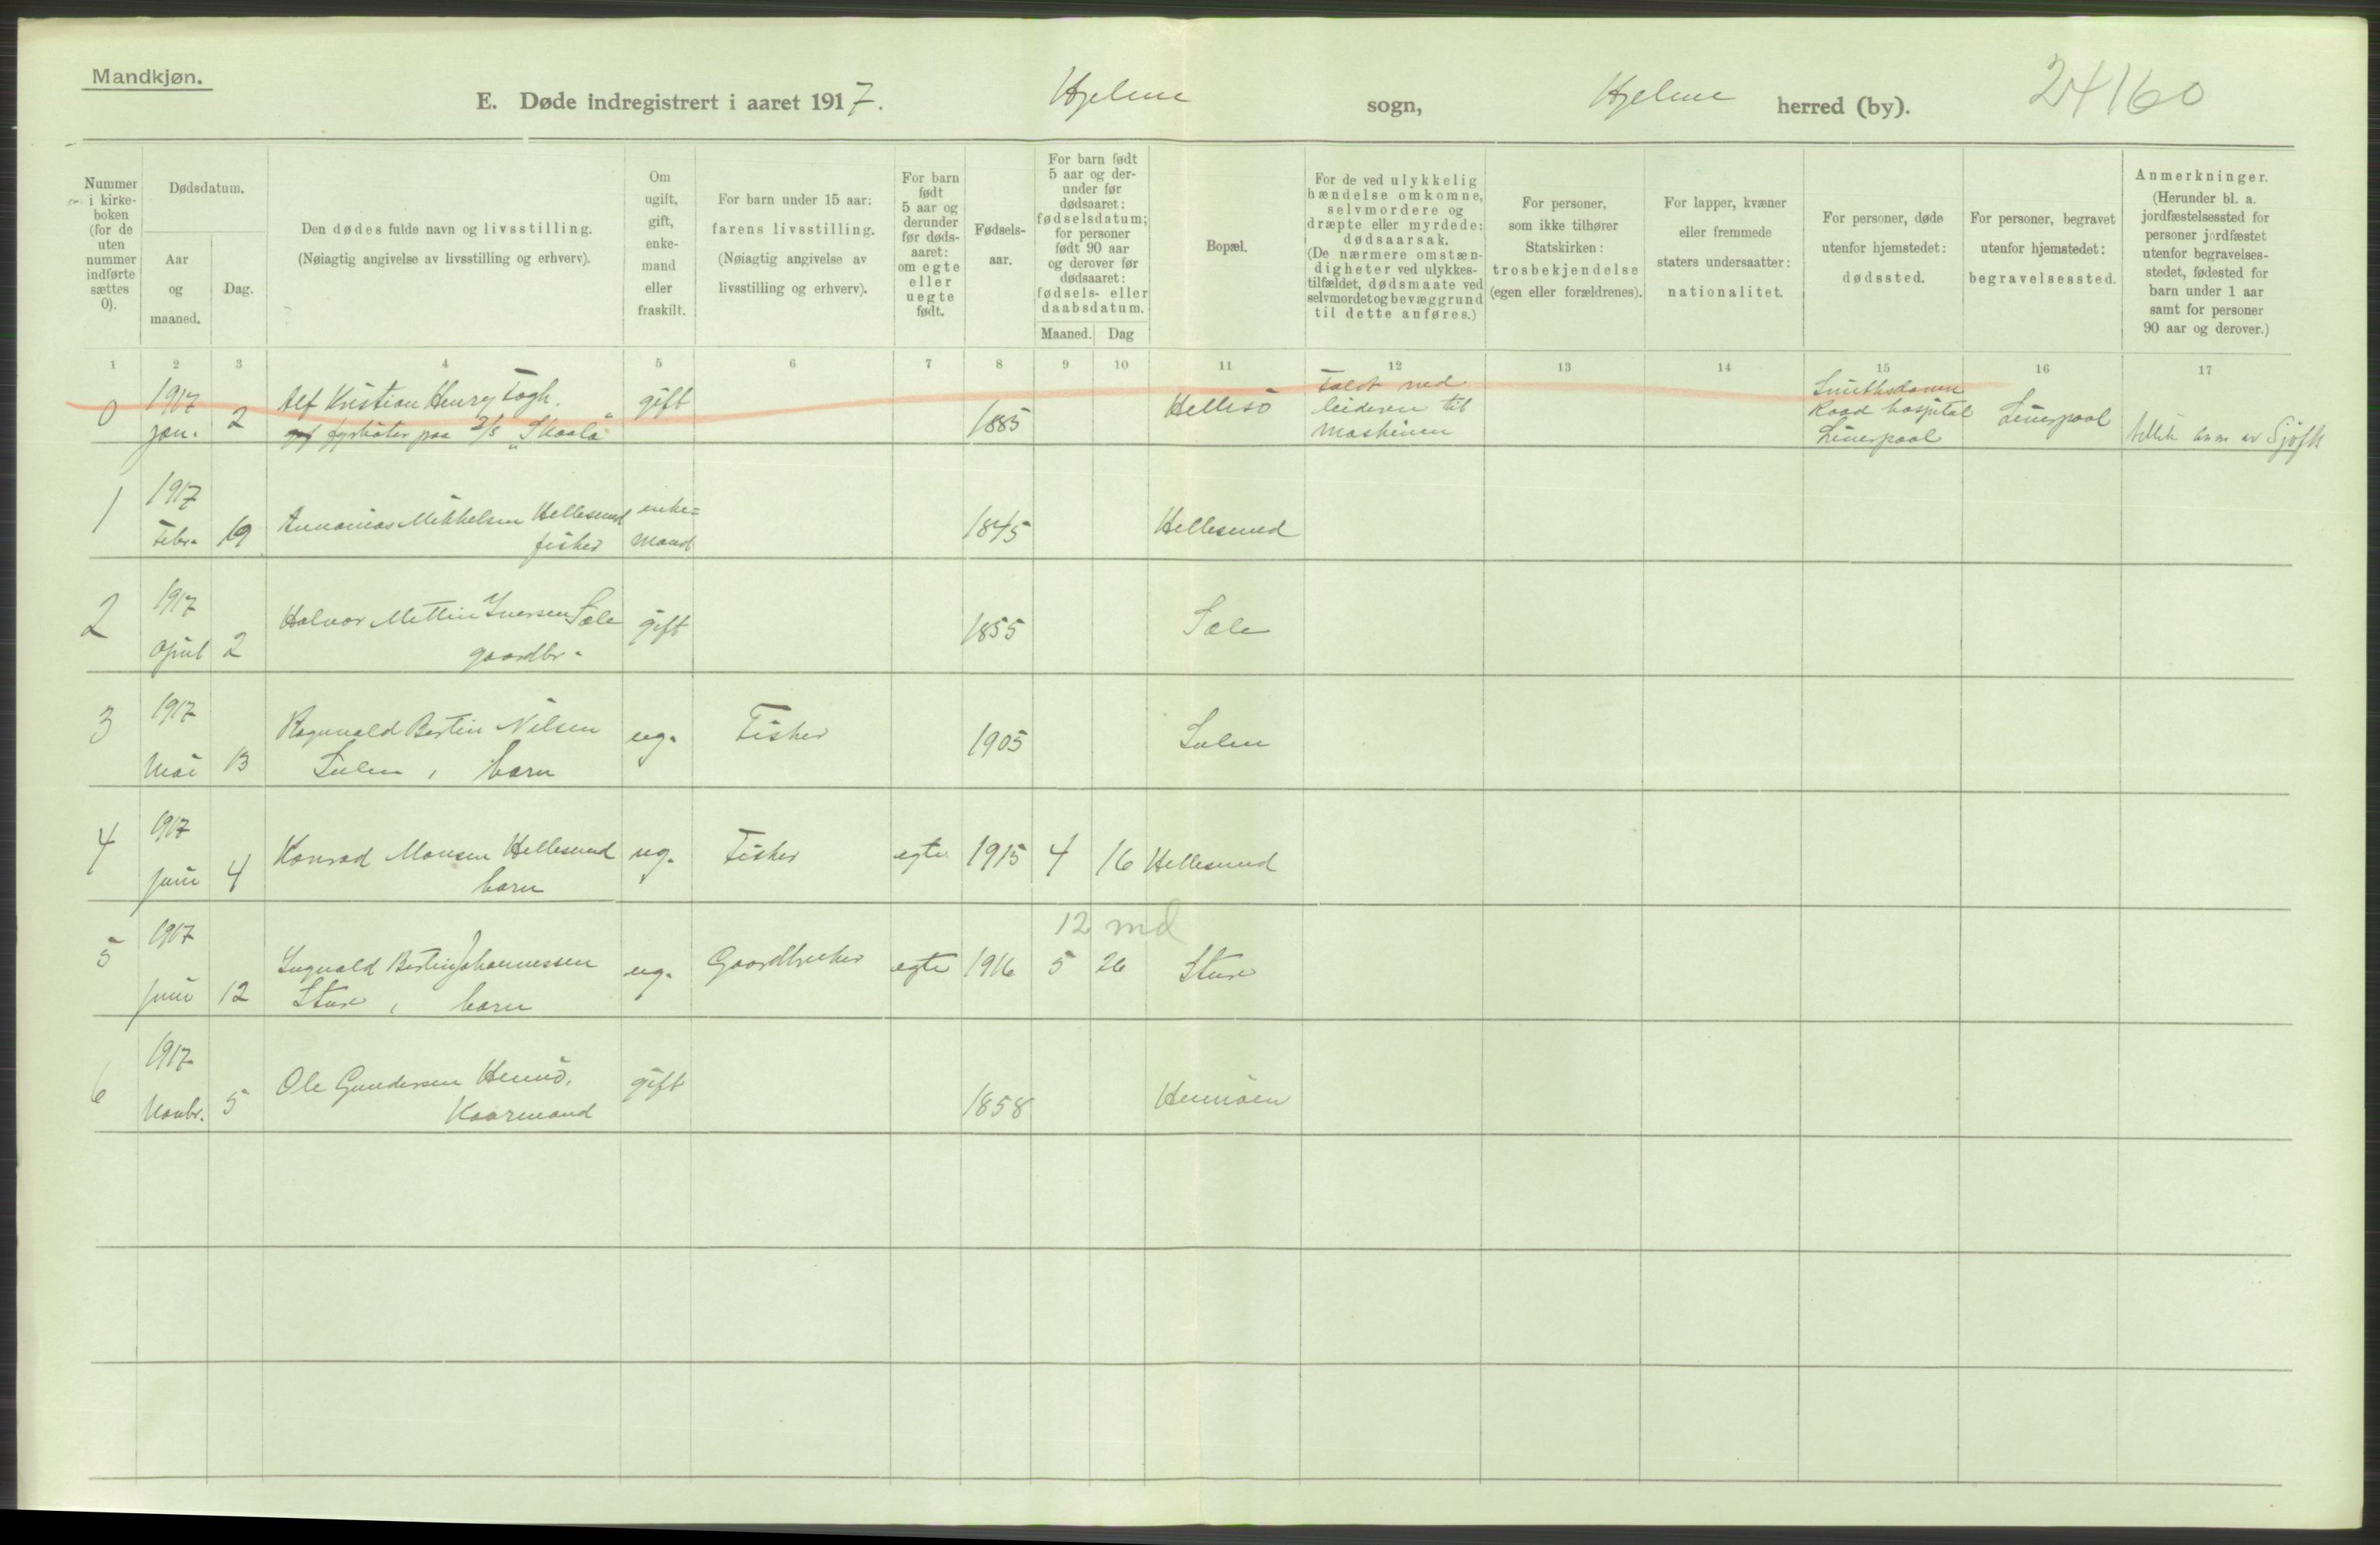 Mandkjøn.
E. Døde indregistrert i aaret 1917. Hjelme sogn, Hjelme herred (by). 24160
Nummer i kirke-boken (for de uten nummer indførte sættes 0).
Dødsdatum.
Aar og maaned.
Dag.
Den dødes fulde navn og livsstilling.
(Nøiagtig angivelse av livsstilling og erhverv).
Om ugift, gift, enke-mand eller fraskilt.
For barn under 15 aar:
farens livsstilling.
(Nøiagtig angivelse av livsstilling og erhverv).
For barn født 5 aar og derunder før døds-aaret: om egte eller uegte født.
Fødsels-aar.
For barn født 5 aar og der-under før dødsaaret: fødselsdatum; for personer født 90 aar og derover før dødsaaret: fødsels- eller daabsdatum.
Maaned. Dag
Bopæl.
For de ved ulykkelig hændelse omkomne, selvmordere og dræpte eller myrdede: dødsaarsak.
(De nærmere omstæn-digheter ved ulykkes-tilfældet, dødsmaate ved selvmordet og bevæggrund til dette anføres.)
For personer, som ikke tilhører Statskirken: trosbekjendelse (egen eller forældrenes).
For lapper, kvæner eller fremmede staters undersaatter: nationalitet.
For personer, døde utenfor hjemstedet: dødssted.
For personer, begravet utenfor hjemstedet: begravelsessted.
Anmerkninger.
(Herunder bl. a. jordfæstelsessted for personer jordfæstet utenfor begravelses-stedet, fødested for barn under 1 aar samt for personer 90 aar og derover.)
1 2 3 4 5 6 7 8 9 10 11 12 13 14 15 16 17
0 1917 jan. 2 Alf Kristian Henry Fogh. gift 1885 Hellisö Faldt ned
fyrböter paa D/S "Skaala" leideren til
maskinen
Smithsdown
Road hospital
Liverpool
Liverpool
1 1917 Febr. 19 Annanias Mikkelsen Hellesund enke=
fisker mand 1845 Hellesund
2 1917 April 2 Halvor Mettin Iversen Sæle gift 1855 Sæle
gaardbr.
3 1917 Mai 13 Ragnvald Bertin Nilsen ug. Fisker 1905 Sulen
Sulen, barn
4 1917 Juni 4 Konrad Monsen Hellesund ug. Fisker egte 1915 4 16 Hellesund
barn
12 md
5 1917 Juni 12 Ingvald Bertin Johannessen ug. Gaardbruker egte 1916 5 26 Sture
Sture, barn
6 1917 Novbr. 5 Ole Gundersen Hernö, gift 1858 Hernöen
Kaarmand